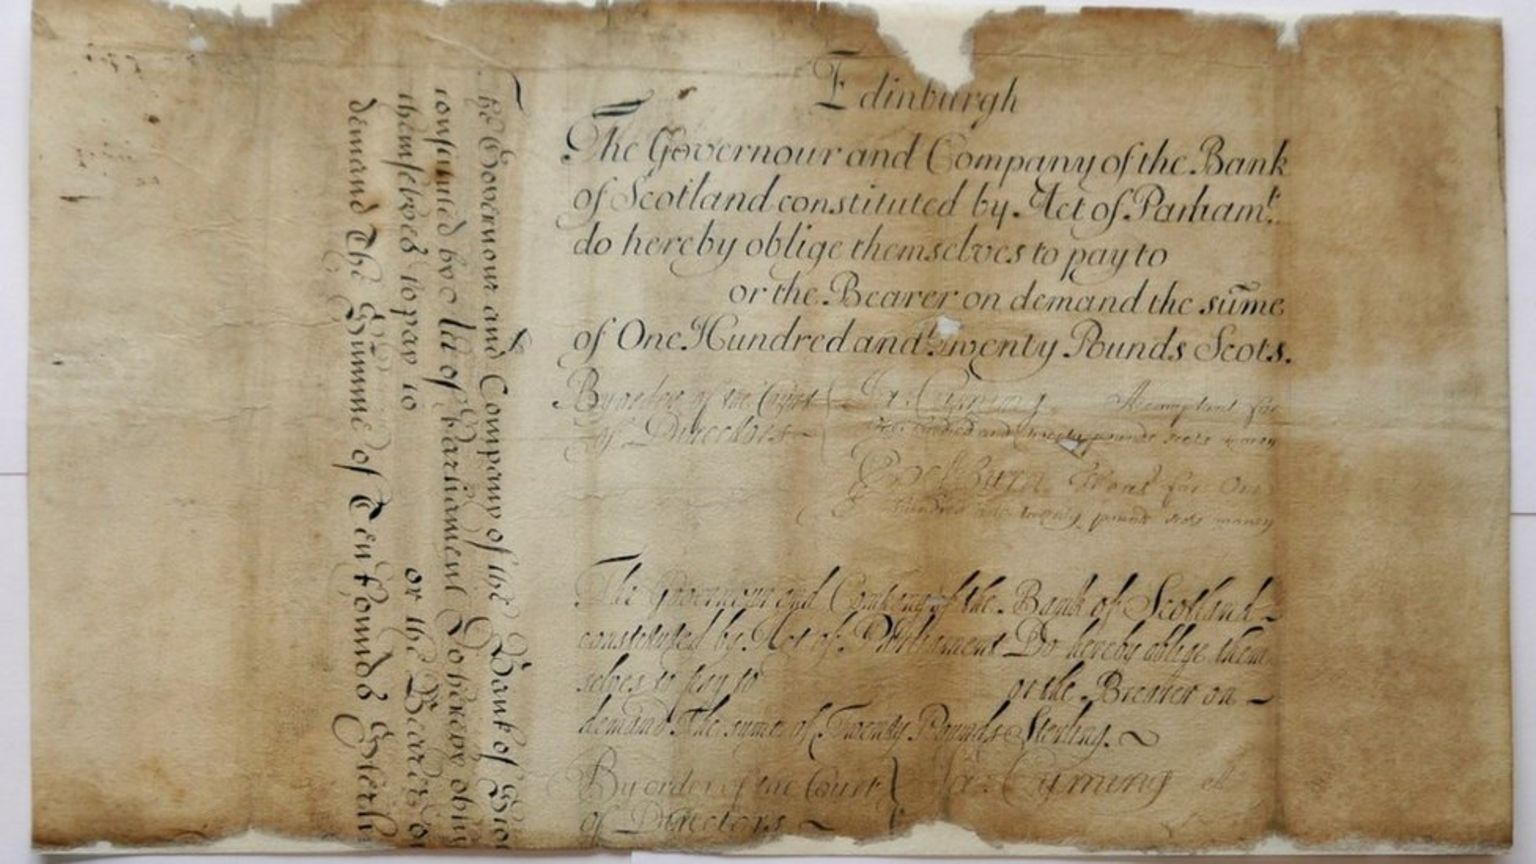 Edinburgh
The Governour and Company of the Bank
of Scotland constituted by Act of Parliamt.
do hereby oblige themselves to pay to
or the Bearer on demand the sume
of One Hundred and Twenty Pounds Scots.
By order of the Court
of Directors
Ja: Cyming Accomptant for
One hundred and twenty pounds scots money
for One
hundred and twenty pounds scots money
The Governour and Company of the Bank of Scotland
constituted by Act of Parliament Do hereby oblige them
selves to pay to or the Bearer on
demand The sume of Twenty Pounds Sterling.
By order of the Court
of Directors
Ja: Cyming
The Governour and Company of the Bank of Sco
constituted by Act of Parliament Do hereby oblig
themselves to pay to or the Bearer o
demand The Summe of Ten Pounds Sterli